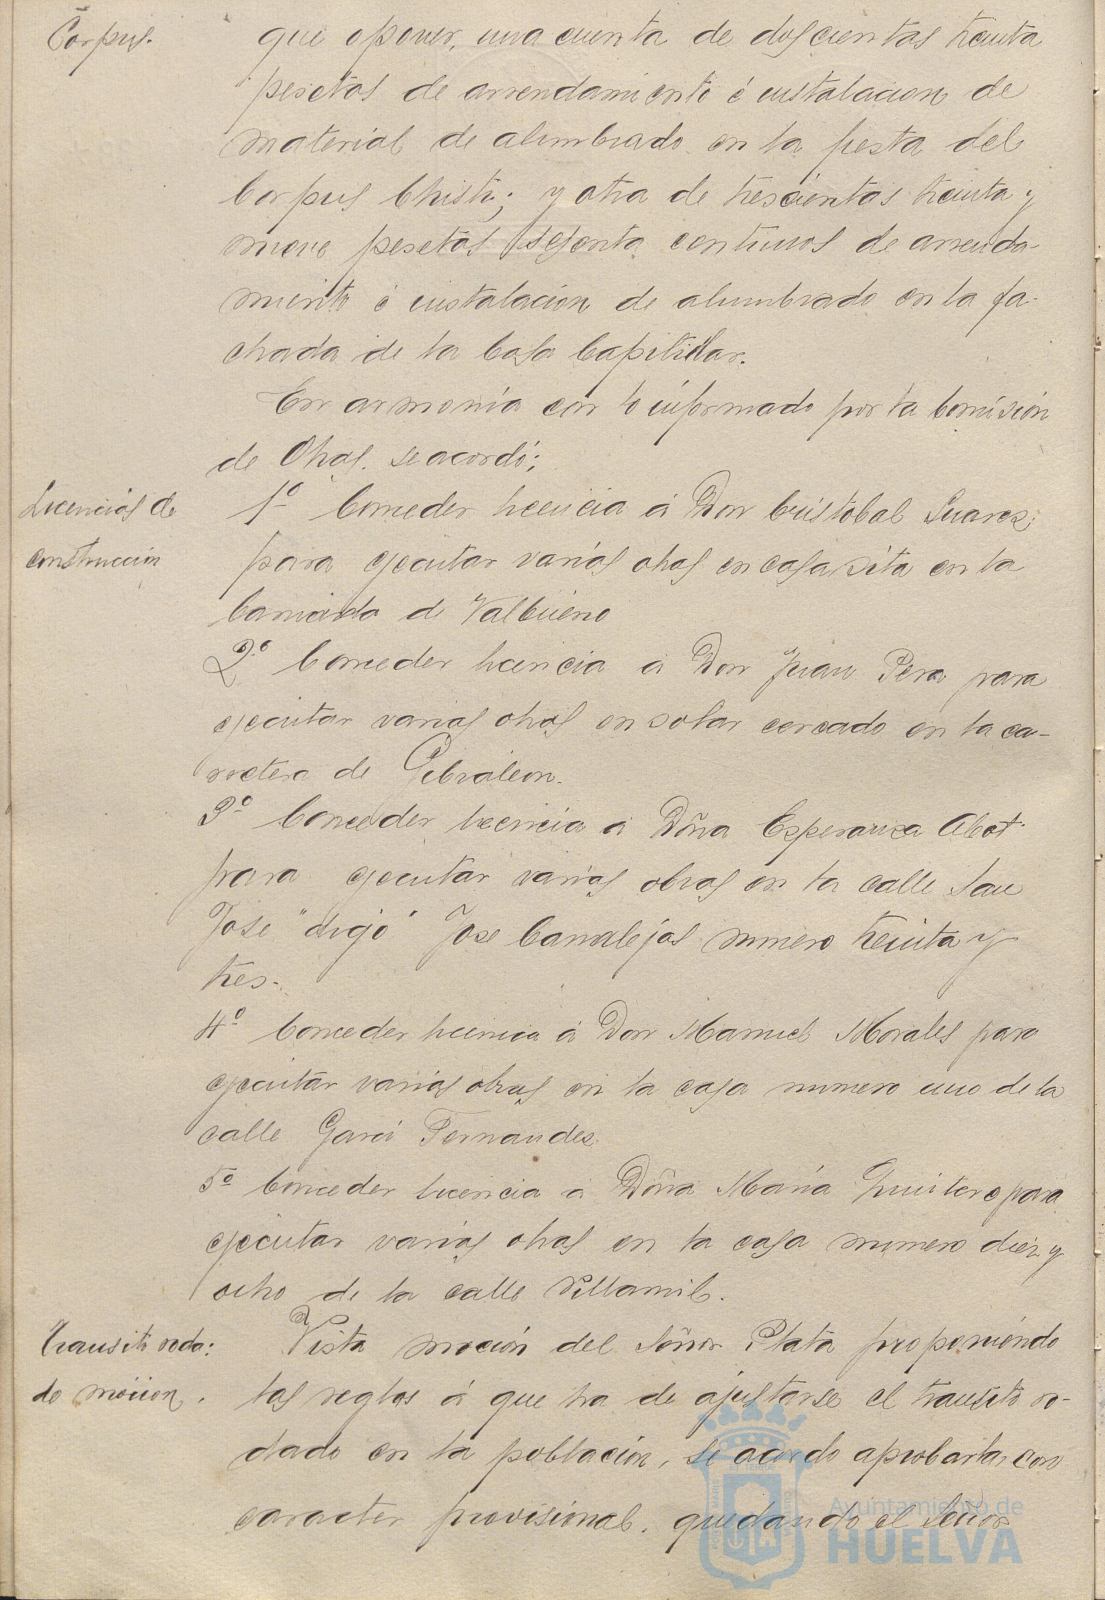 Corpus.
que oponer, una cuenta de doscientas treinta
pesetas de arrendamiento é instalacion de
material de alumbrado en la fiesta del
Corpus Christi; y otra de trescientas treinta y
nueve pesetas sesenta centimos de arrenda-
miento é instalacion de alumbrado en la fa-
chada de la Casa Capitular.
En armonía con lo informado por la Comisión
de Obras. se acordó;
Licencias de
construccion
1º Conceder licencia á Don Cristobal Suarez
para ejecutar varias obras en casa sita en la
barriada de Valbueno
2º Conceder licencia á Don Juan Pera para
ejecutar varias obras en solar cercado en la ca-
rretera de Gibraleon.
3º Conceder licencia á Doña Esperanza Abot
para ejecutar varias obras en la calle San
José "digo" Jose Canalejas numero treinta y
tres.
4º Conceder licencia á Don Manuel Morales para
ejecutar varias obras en la casa numero uno de la
calle Garci Fernandez
5º Conceder licencia á Doña María Quintero para
ejecutar varias obras en la casa numero diez y
ocho de la calle Villamil.
Transito roda:
do mocion.
Vista moción del Señor Plata proponiendo
las reglas á que ha de ajustarse el transito ro-
dado en la población, se acordo aprobarlas con
caracter provisional, quedando el Señor
Ayuntamiento de
HUELVA